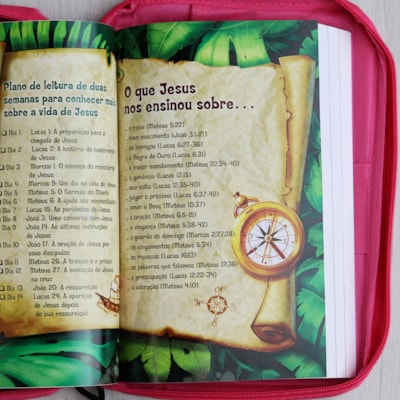 Plano de leitura de duas
semanas para conhecer mais
sobre a vida de Jesus
Dia 1 Lucas 1: A preparação para a
chegada de Jesus
Dia 2 Lucas 2: A história do nascimento
de Jesus
Dia 3 Marcos 1: O começo do ministério
de Jesus
Dia 4 Marcos 9: Um dia na vida de Jesus
Dia 5 Mateus 5: O Sermão do Monte
Dia 6 Mateus 6: A ajuda aos necessitados
Dia 7 Lucas 15: As parábolas de Jesus
Dia 8 João 3: Uma conversa com Jesus
Dia 9 João 14: As últimas instruções
de Jesus
Dia 10 João 17: A oração de Jesus por seus
discípulos
Dia 11 Mateus 26: A traição e a prisão
Dia 12 Mateus 27: A execução de Jesus
na cruz
Dia 13 João 20: A ressurreição
Dia 14 Lucas 24: A aparição
de Jesus depois
de sua ressurreição
O que Jesus
nos ensinou sobre...
a raiva (Mateus 5.22)
nascimento (João 3.1-21)
os inimigos (Lucas 6.27-36)
a Regra de Ouro (Lucas 6.31)
o maior mandamento (Mateus 22.34-40)
a ganância (Lucas 12.15)
sua volta (Lucas 12.35-40)
julgar o próximo (Lucas 6.37-42)
amar a Deus (Mateus 10.37)
a oração (Mateus 6.5-15)
a vingança (Mateus 5.38-42)
a guarda do domingo (Marcos 2.27,28)
os xingamentos (Mateus 5.34)
as riquezas (Lucas 16.13)
as palavras que falamos (Mateus 12.36)
a preocupação (Lucas 12.22-34)
a adoração (Mateus 4.10)